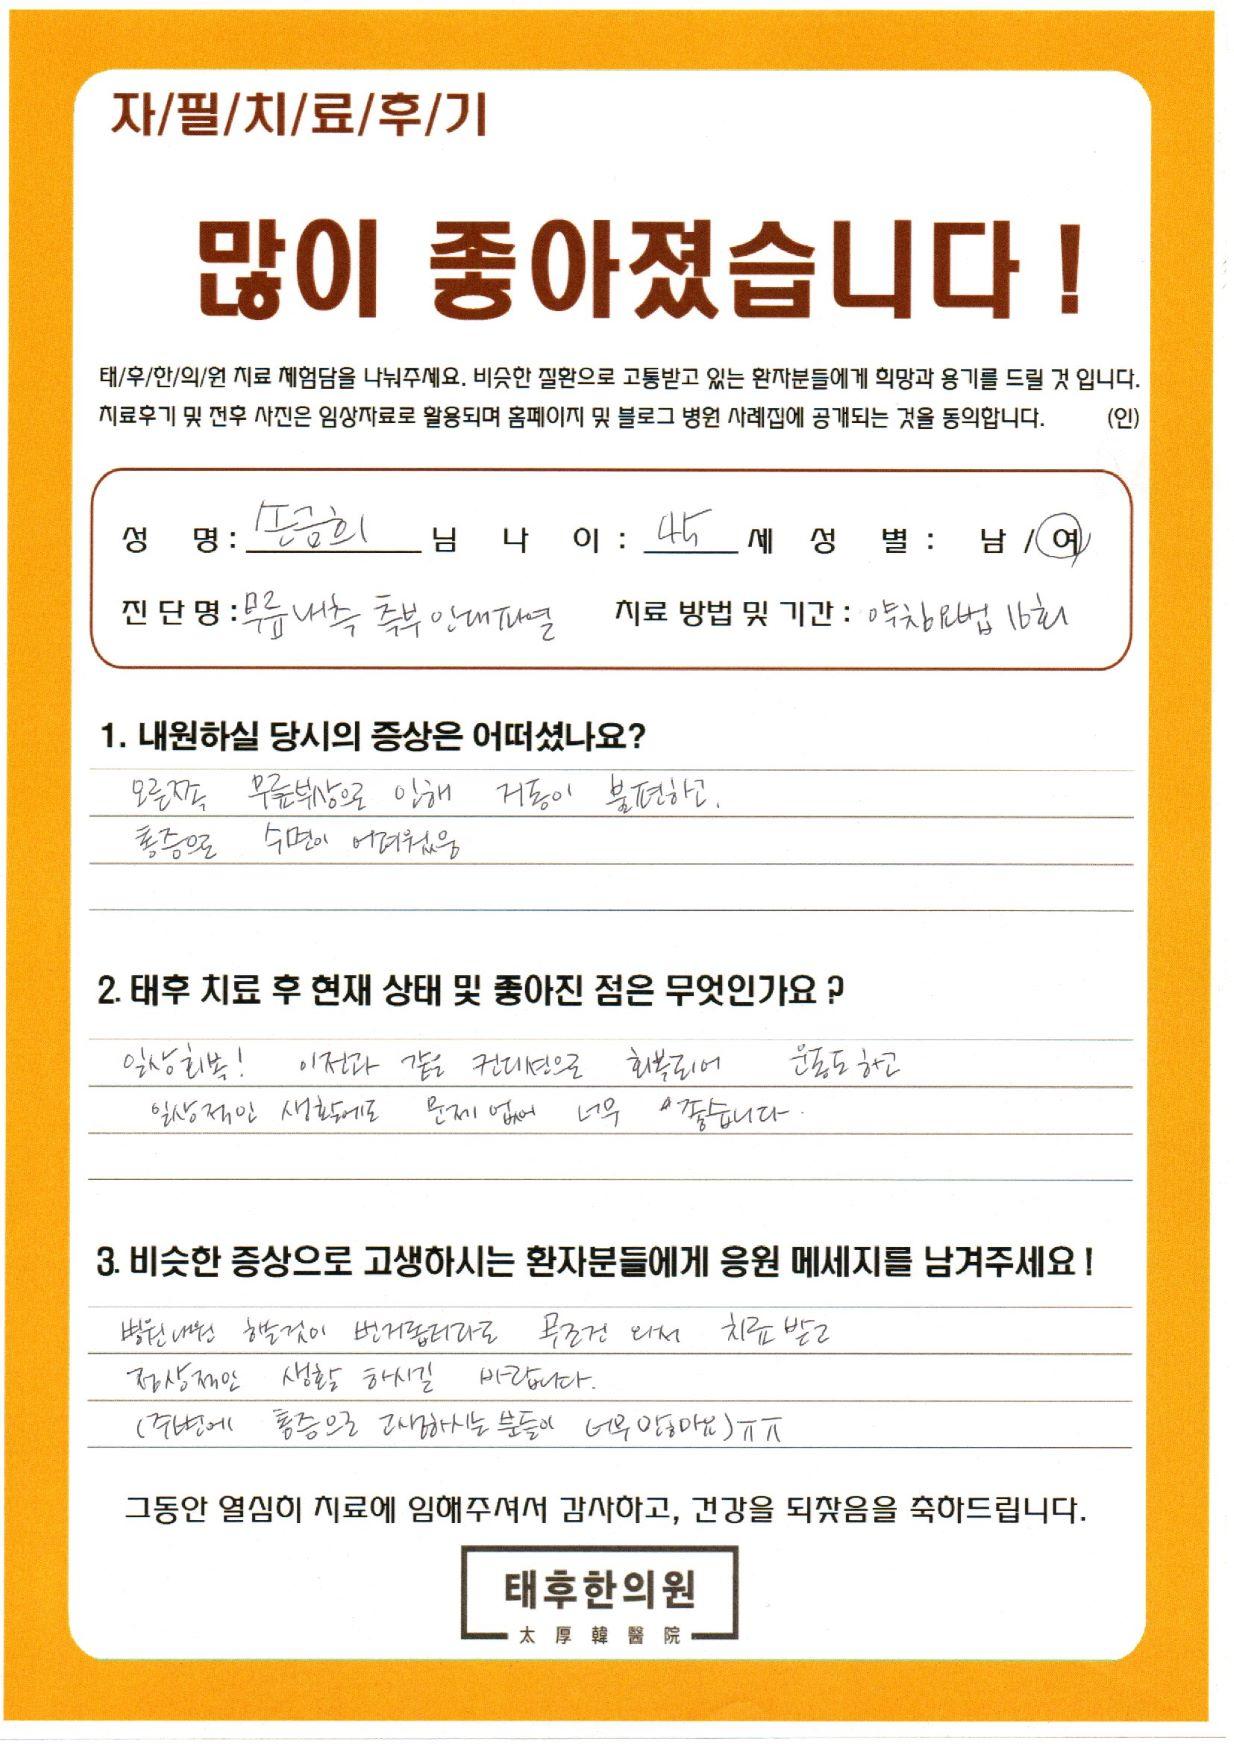 자/필/치/료/후/기
많이 좋아졌습니다!
태/후/한/의/원 치료 체험담을 나눠주세요. 비슷한 질환으로 고통받고 있는 환자분들에게 희망과 용기를 드릴 것 입니다.
치료후기 및 전후 사진은 임상자료로 활용되며 홈페이지 및 블로그 병원 사례집에 공개되는 것을 동의합니다. (인)
성 명 : 손금희 님 나 이 : 45 세 성 별 : 남 / 여
진 단 명 : 무릎 내측 측부 인대파열 치료 방법 및 기간 : 약침요법 16회
1. 내원하실 당시의 증상은 어떠셨나요?
오른쪽 무릎부상으로 인해 거동이 불편하고,
통증으로 수면이 어려웠음
2. 태후 치료 후 현재 상태 및 좋아진 점은 무엇인가요?
일상회복! 이전과 같은 컨디션으로 회복되어 운동도 하고
일상적인 생활에도 문제 없어 너무 "좋습니다.
3. 비슷한 증상으로 고생하시는 환자분들에게 응원 메세지를 남겨주세요!
병원내원 하는것이 번거롭더라도 무조건 와서 치료 받고
정상적인 생활 하시길 바랍니다.
(주변에 통증으로 고생하시는 분들이 너무 많아요)ㅠㅠ
그동안 열심히 치료에 임해주셔서 감사하고, 건강을 되찾음을 축하드립니다.
태후한의원
太厚韓醫院